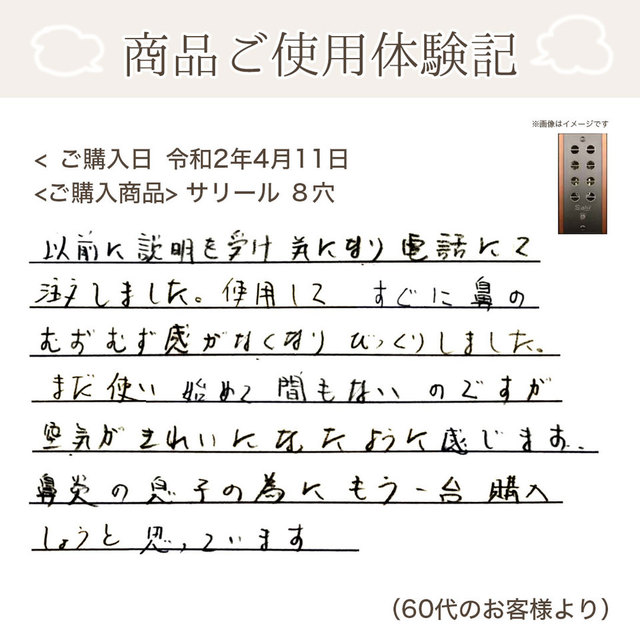 商品ご使用体験記
※画像はイメージです
< ご購入日 令和2年4月11日
<ご購入商品> サリール 8穴
以前に説明を受け気になり電話にて
注文しました。使用して すぐに鼻の
むずむず感がなくなりびっくりしました。
まだ使い始めて間もないのですが
空気がきれいになったように感じます。
鼻炎の息子の為にもう一台購入
しようと思っています
(60代のお客様より)